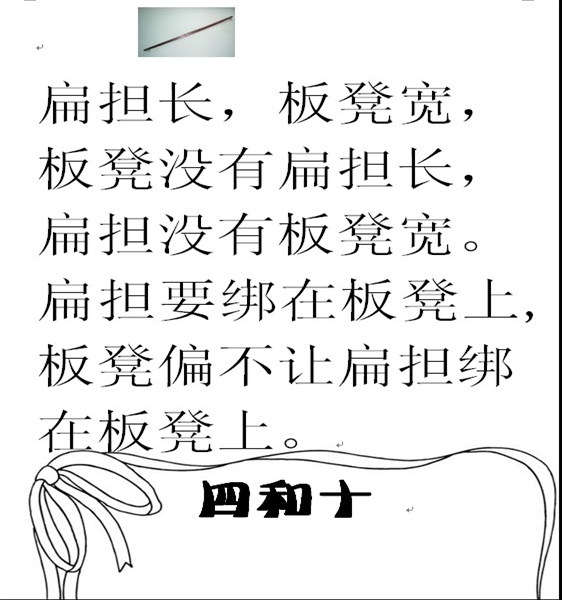 扁担长，板凳宽，
板凳没有扁担长，
扁担没有板凳宽。
扁担要绑在板凳上，
板凳偏不让扁担绑
在板凳上。
四和十